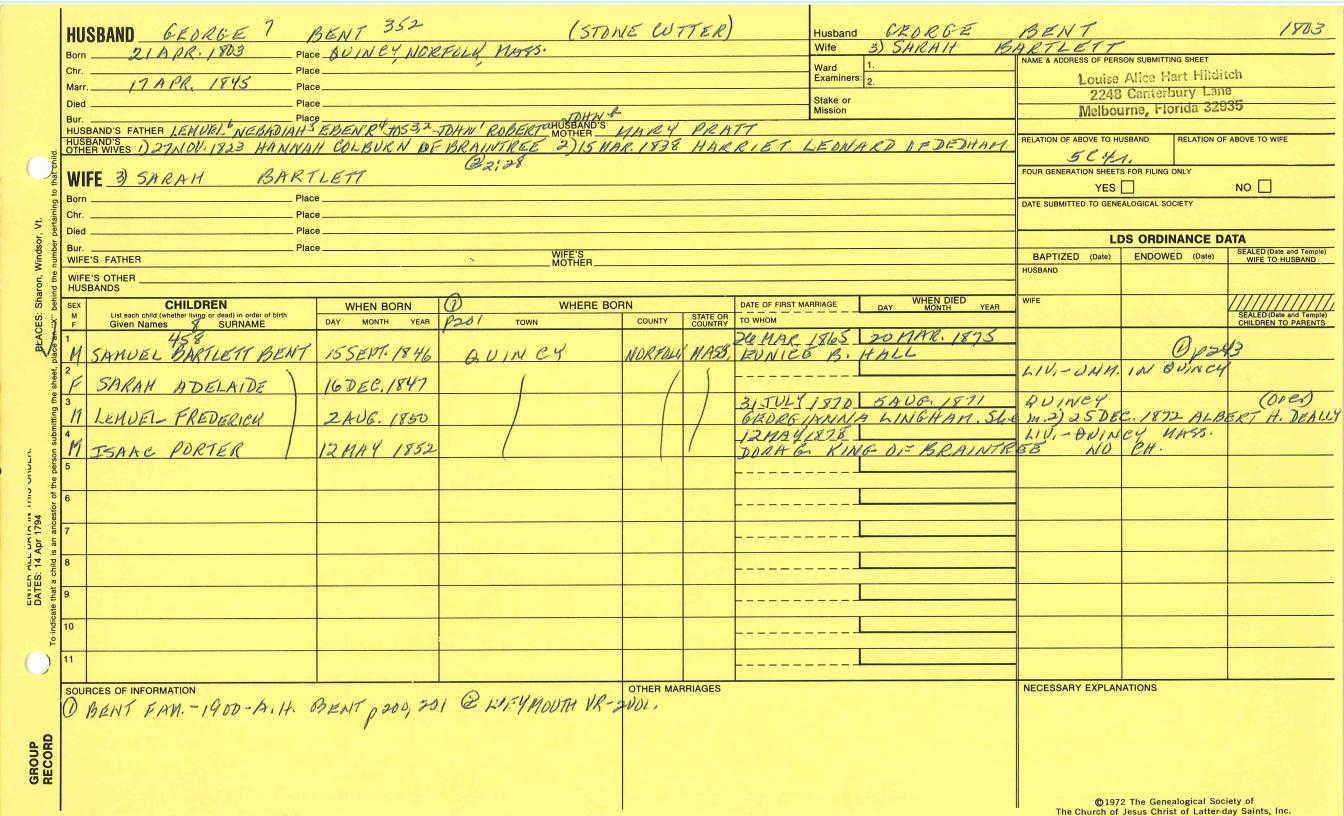 HUSBAND GEORGE 7 BENT 352 (STONE CUTTER)
Born 21 APR. 1803 Place QUINCY, NORFOLK, MASS.
Chr. Place
Marr. 17 APR. 1845 Place
Died Place
Bur. Place
HUSBAND'S FATHER LEMUEL 6 NEBADIAH 5 EBEN'R 4 JOS 3,2 JOHN 1 ROBERT JOHN HUSBAND'S MOTHER MARY PRATT
HUSBAND'S OTHER WIVES 1) 27 NOV. 1823 HANNAH COLBURN OF BRAINTREE 2) 15 MAR. 1838 HARRIET LEONARD OF DEDHAM
② 2:28
WIFE 3) SARAH BARTLETT
Born Place
Chr. Place
Died Place
Bur. Place
WIFE'S FATHER WIFE'S MOTHER
WIFE'S OTHER HUSBANDS
Husband GEORGE BENT 1803
Wife 3) SARAH BARTLETT
Ward Examiners: 1. 2.
Stake or Mission
NAME & ADDRESS OF PERSON SUBMITTING SHEET
Louise Alice Hart Hilditch
2248 Canterbury Lane
Melbourne, Florida 32935
RELATION OF ABOVE TO HUSBAND RELATION OF ABOVE TO WIFE
5C4r.
FOUR GENERATION SHEETS FOR FILING ONLY
YES NO
DATE SUBMITTED TO GENEALOGICAL SOCIETY
LDS ORDINANCE DATA
BAPTIZED (Date) ENDOWED (Date) SEALED (Date and Temple) WIFE TO HUSBAND
HUSBAND
WIFE
SEALED (Date and Temple) CHILDREN TO PARENTS
SEX M F CHILDREN WHEN BORN ① WHERE BORN DATE OF FIRST MARRIAGE WHEN DIED
List each child (whether living or dead) in order of birth
Given Names 8 SURNAME DAY MONTH YEAR P201 TOWN COUNTY STATE OR COUNTRY TO WHOM DAY MONTH YEAR
1 458 26 MAR 1865 20 MAR. 1875
M SAMUEL BARTLETT BENT 15 SEPT. 1846 QUINCY NORFOLK MASS. EUNICE B. HALL ① p243
2 LIV.-UNM. IN QUINCY
F SARAH ADELAIDE 16 DEC, 1847
3 31 JULY 1870 5 AUG. 1871 QUINCY (Over)
M LEMUEL FREDERICK 2 AUG. 1850 GEORGIANNA LINGHAM. She m. 2) 25 DEC. 1872 ALBERT H. DEALLY
4 12 MAY 1878 LIV.-QUINCY MASS.
M ISAAC PORTER 12 MAY 1852 DORA G. KING OF BRAINTREE NO CH.
5
6
7
8
9
10
11
SOURCES OF INFORMATION OTHER MARRIAGES NECESSARY EXPLANATIONS
① BENT FAM.-1900-A.H. BENT p200, 201 ② WEYMOUTH VR-2VOL.
©1972 The Genealogical Society of
The Church of Jesus Christ of Latter-day Saints, Inc.
GROUP RECORD
DATES: 14 Apr 1794
PLACES: Sharon, Windsor, Vt.
To indicate that a child is an ancestor of the person submitting the sheet, place an "X" behind the number pertaining to that child.